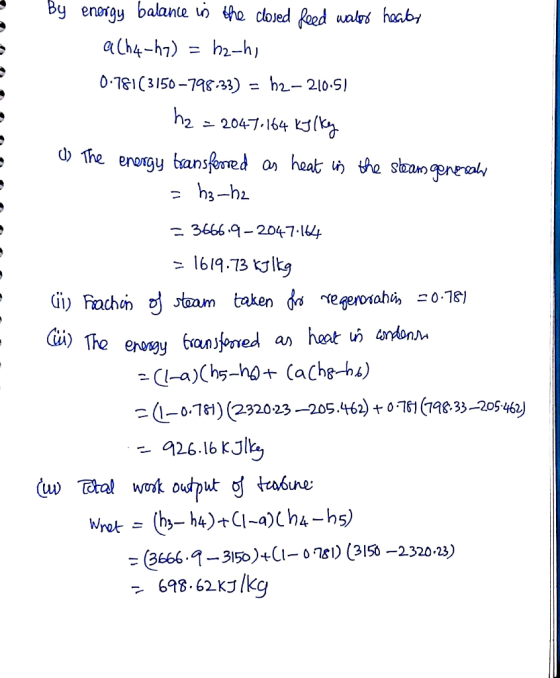 By energy balance in the closed feed water heater
a(h4-h7) = h2-h1
0.781(3150-798.33) = h2-210.51
h2 = 2047.164 kJ/kg
(i) The energy transferred as heat in the steam generator
= h3-h2
= 3666.9-2047.164
= 1619.73 kJ/kg
(ii) Fraction of steam taken for regeneration = 0.781
(iii) The energy transferred as heat in condenser
= (1-a)(h5-h6) + (a(h8-h6)
= (1-0.781)(2320.23-205.462) + 0.781(798.33-205.462)
= 926.16 KJ/kg
(iv) Total work output of turbine:
Wnet = (h3-h4)+(1-a)(h4-h5)
= (3666.9-3150)+(1-0.781)(3150-2320.23)
= 698.62 KJ/kg